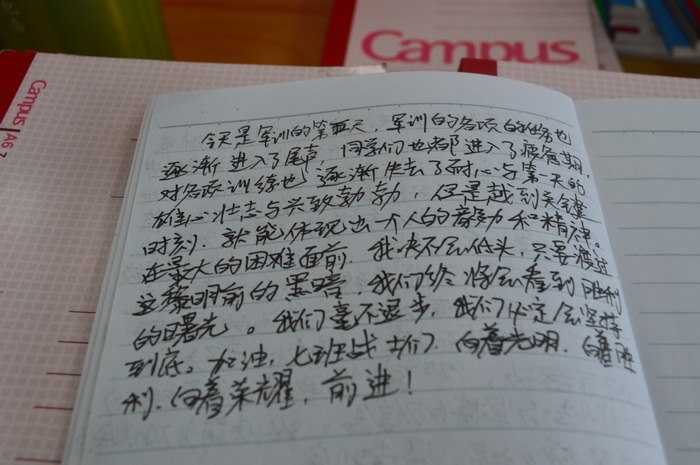 Campus
Campus A6
今天是军训的第五天，军训的各项的任务也
逐渐进入了尾声，同学们也都进入了疲惫期，
对各项训练也逐渐失去了耐心与第一天的
雄心壮志与兴致勃勃，但是越到关键
时刻，就能体现出一个人的毅力和精神。
在最大的困难面前，我决不会低头，只要渡过
这黎明前的黑暗，我们终将会看到胜利
的曙光。我们毫不退步，我们必定会坚持
到底。加油，七班战士们，向着光明，向着胜
利，向着荣耀，前进！